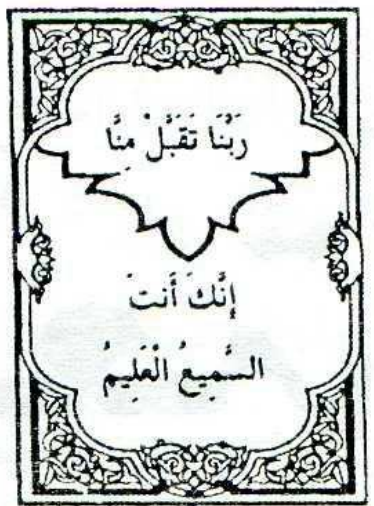 رَبَّنَا تَقَبَّلْ مِنَّا
إِنَّكَ أَنتَ
السَّمِيعُ الْعَلِيمُ